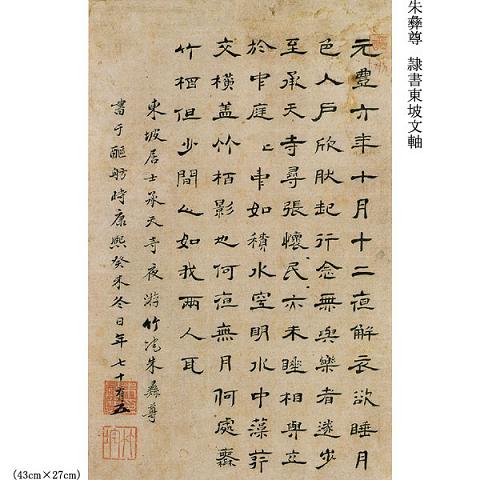 朱彝尊 隷書東坡文軸
元豐六年十月十二夜解衣欲睡月
色入戶欣然起行念無與樂者遂步
至承天寺尋張懷民亦未睡相與立
於中庭〻中如積水空明水中藻荇
交橫蓋竹栢影也何夜無月何處無
竹栢但少閒人如我兩人耳
東坡居士承天寺夜游竹垞朱彝尊
書于醧舫時康熙癸未冬日年七十有五
(43cm×27cm)